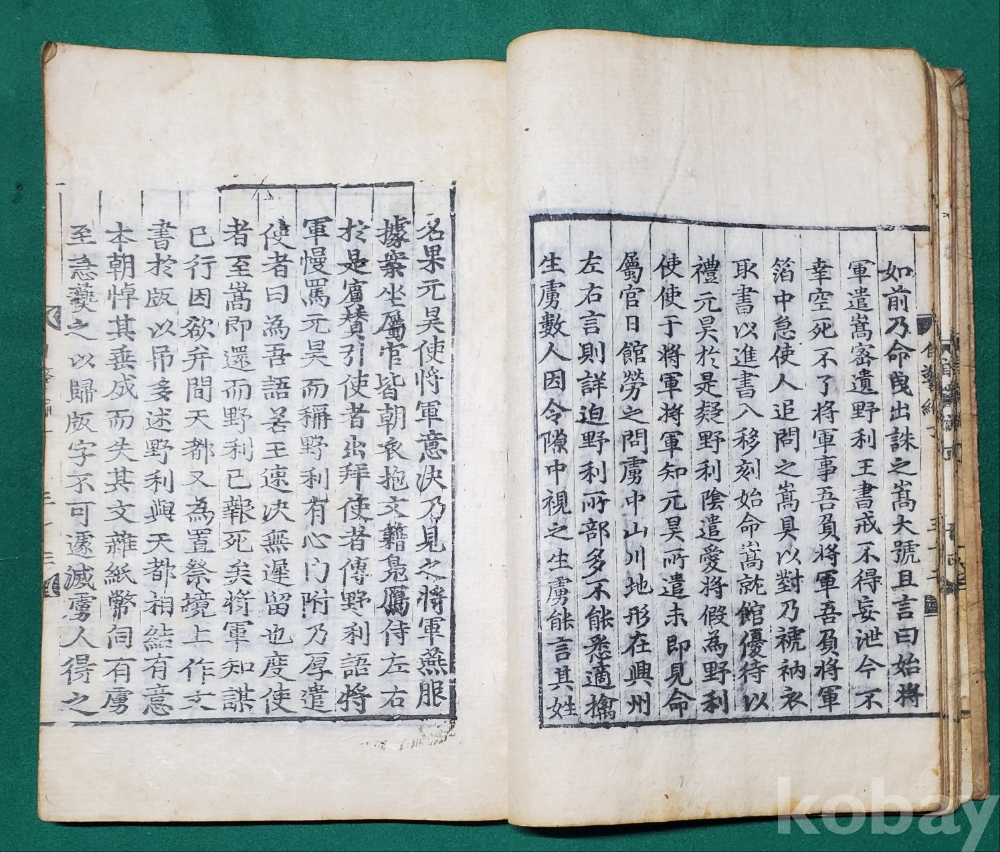 如前乃命曳出誅之嵩大號且言曰始將
軍遣嵩密遺野利王書戒不得妄泄今不
幸空死不了將軍事吾負將軍吾負將軍
箔中急使人追問之嵩具以對乃褫衲衣
取書以進書入移刻始命嵩就館優待以
禮元昊於是疑野利陰遣愛將假為野利
使使于將軍將軍知元昊所遣未即見命
屬官日館勞之問虜中山川地形在興州
左右言則詳迫野利所部多不能悉適擒
生虜數人因令隙中視之生虜能言其姓
名果元昊使將軍意決乃見之將軍燕服
據案坐屬官皆朝衣抱文籍鳧鴈侍左右
於是賓贊引使者出拜使者傳野利語將
軍慢罵元昊而稱野利有心內附乃厚遣
使者曰為吾語若王速決無遲留也度使
者至嵩即還而野利已報死矣將軍知謀
已行因欲并間天都又為置祭境上作文
書於版以吊多述野利與天都相結有意
本朝悼其垂成而失其文雜紙幣伺有虜
至急爇之以歸版字不可遽滅虜人得之
kobay